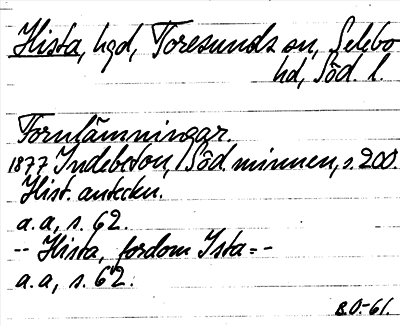 Hista, hgd, Toresunds sn, Selebo
hd, Söd. l.
Fornlämningar.
1877 Indebetou, Söd. minnen, s. 200.
Hist. anteckn.
a.a, s. 62.
-- Hista, fordom Ista=-
a.a, s. 62.
B.O.-61.